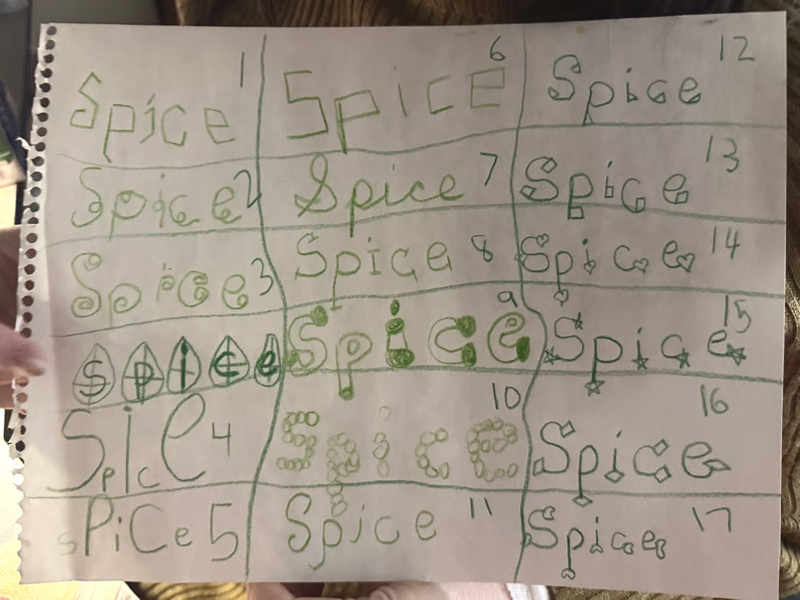 Spice 1
Spice 2
Spice 3
Spice
SpIcE 4
sPiCe 5
Spice 6
Spice 7
Spice 8
Spice 9
Spice 10
Spice 11
Spice 12
Spice 13
Spice 14
Spice 15
Spice 16
Spice 17